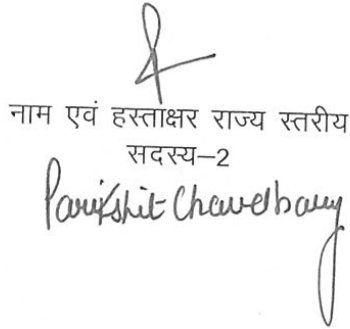 नाम एवं हस्ताक्षर राज्य स्तरीय
सदस्य–2
Parikshit Chawdhary